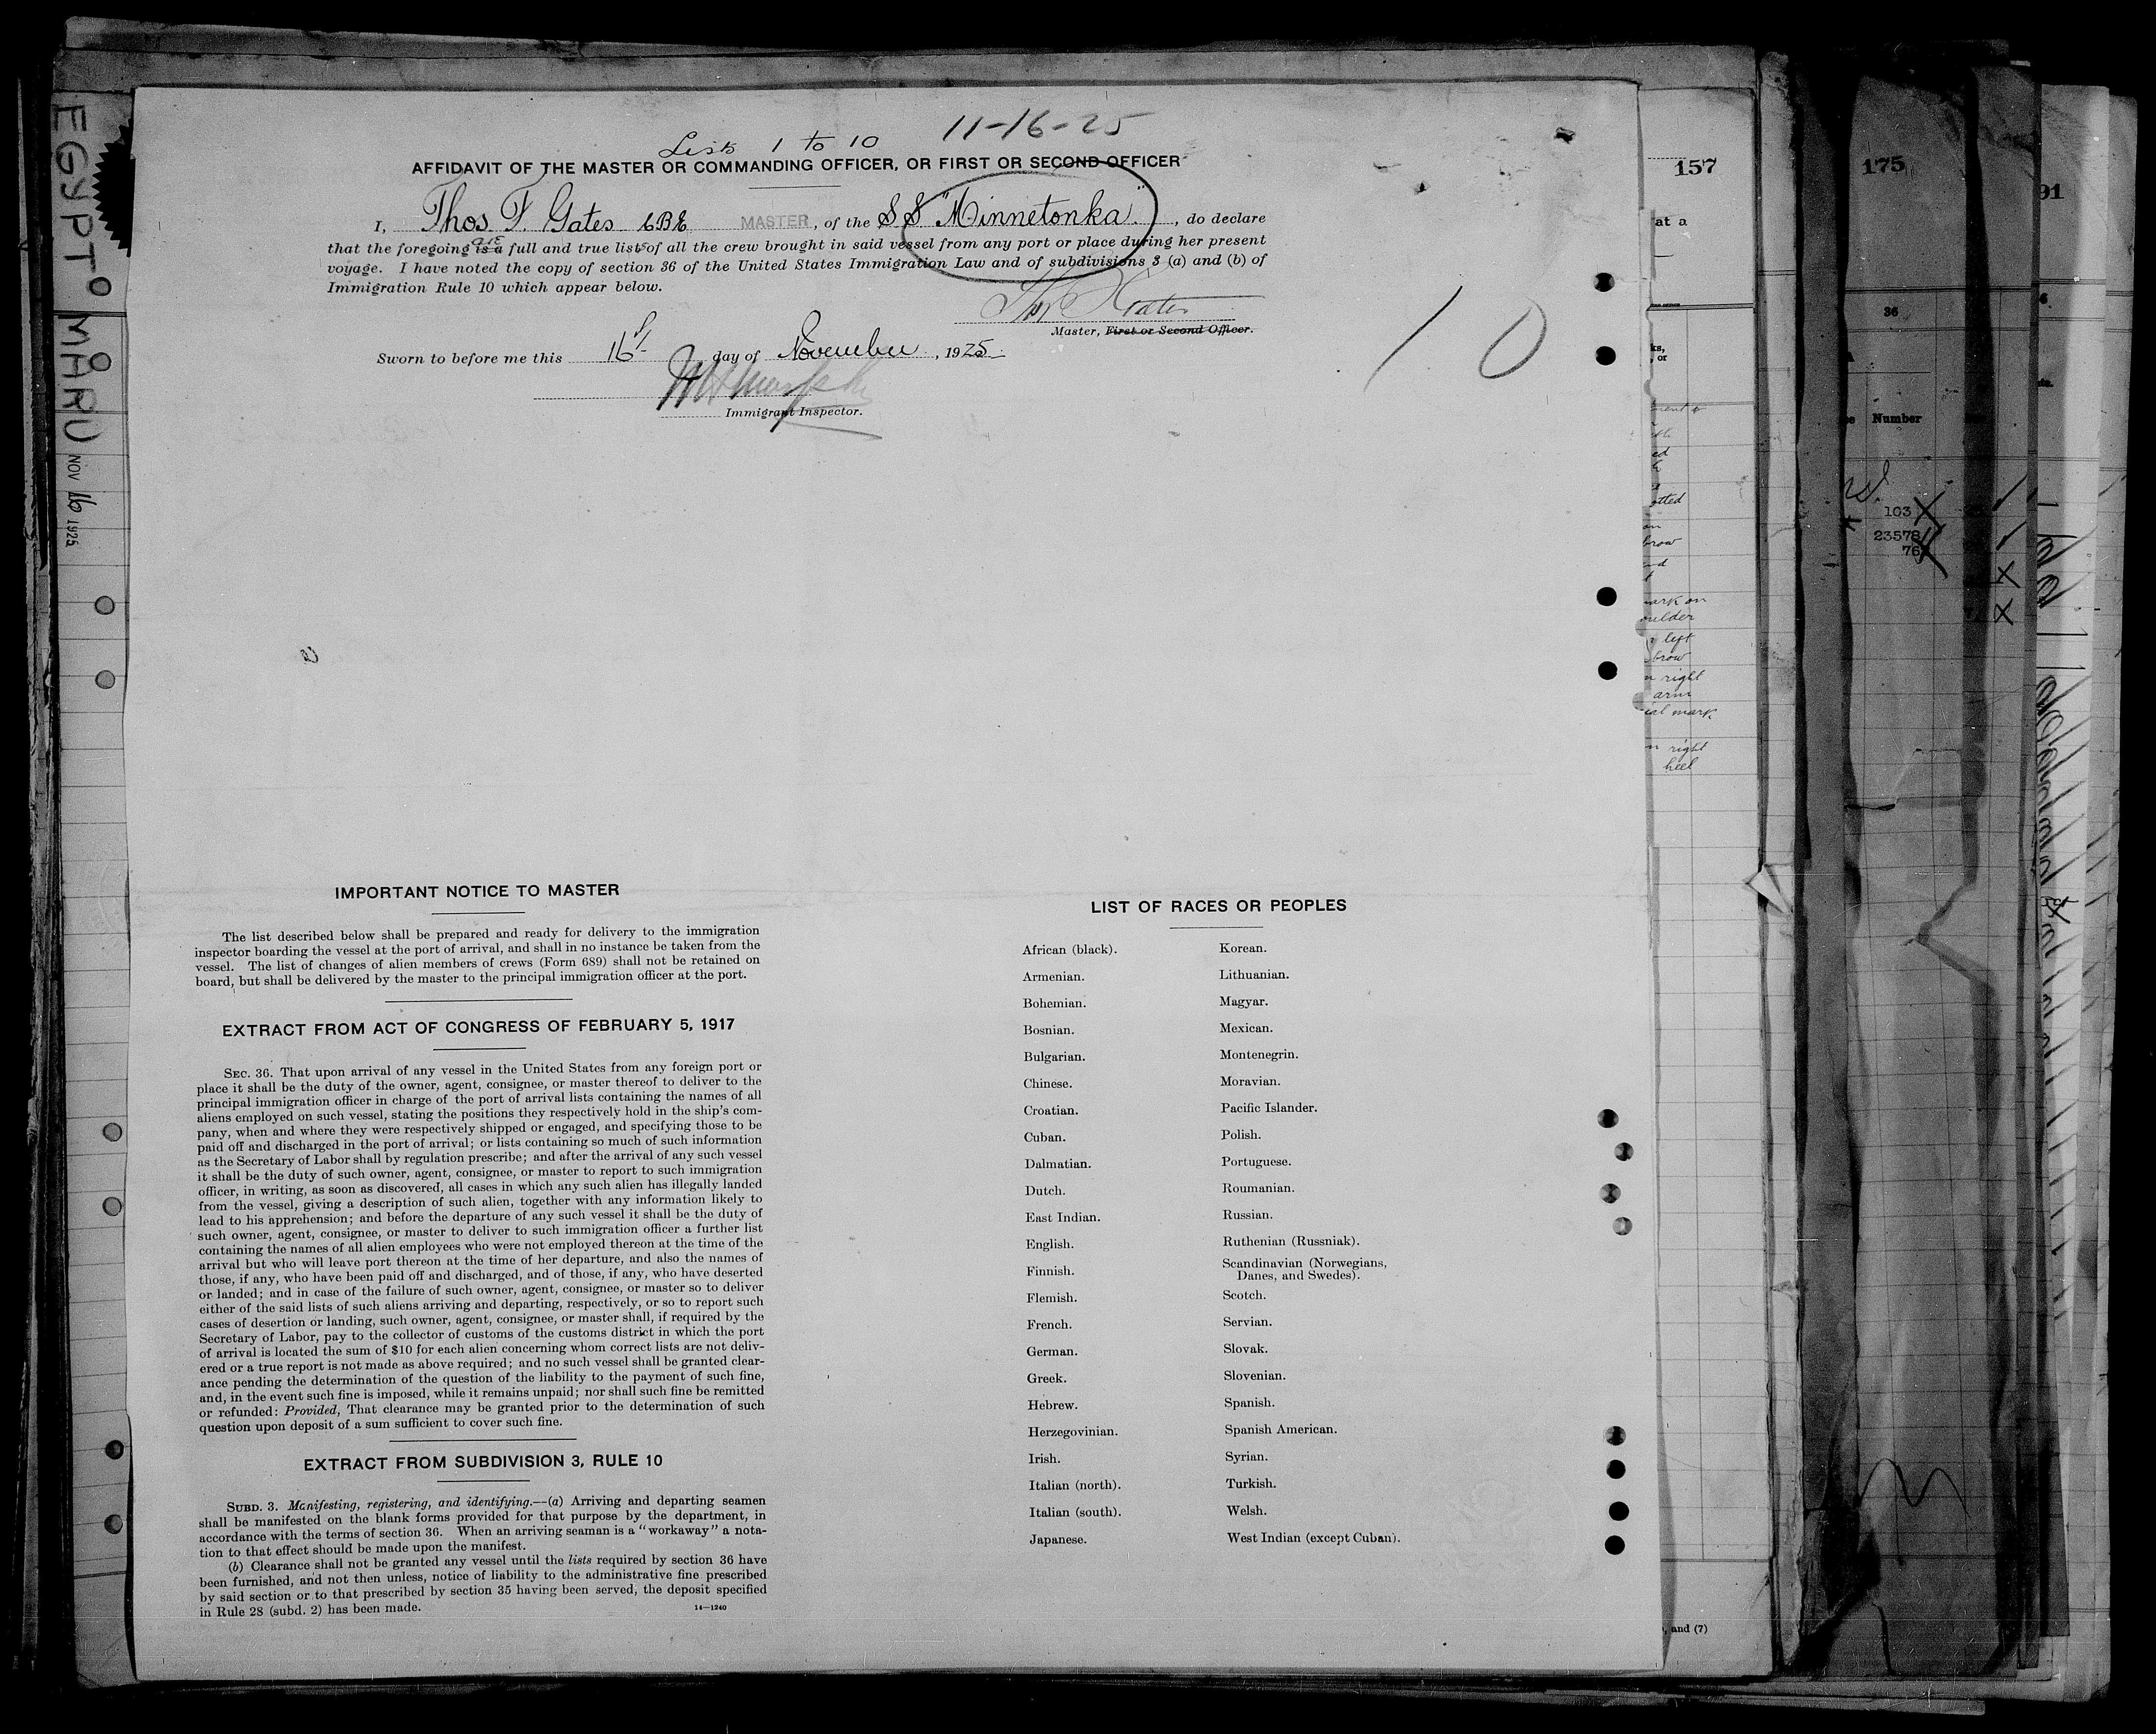 11-16-25
Lists 1 to 10
AFFIDAVIT OF THE MASTER OR COMMANDING OFFICER, OR FIRST OR SECOND OFFICER
I, Thos. F. Gates CBE MASTER, of the SS "Minnetonka", do declare
that the foregoing is a are full and true lists of all the crew brought in said vessel from any port or place during her present
voyage. I have noted the copy of section 36 of the United States Immigration Law and of subdivisions 3 (a) and (b) of
Immigration Rule 10 which appear below.
Master, First or Second Officer.
Sworn to before me this 16 day of November, 1925
Immigrant Inspector.
10
IMPORTANT NOTICE TO MASTER
The list described below shall be prepared and ready for delivery to the immigration
inspector boarding the vessel at the port of arrival, and shall in no instance be taken from the
vessel. The list of changes of alien members of crews (Form 689) shall not be retained on
board, but shall be delivered by the master to the principal immigration officer at the port.
EXTRACT FROM ACT OF CONGRESS OF FEBRUARY 5, 1917
SEC. 36. That upon arrival of any vessel in the United States from any foreign port or
place it shall be the duty of the owner, agent, consignee, or master thereof to deliver to the
principal immigration officer in charge of the port of arrival lists containing the names of all
aliens employed on such vessel, stating the positions they respectively hold in the ship's com-
pany, when and where they were respectively shipped or engaged, and specifying those to be
paid off and discharged in the port of arrival; or lists containing so much of such information
as the Secretary of Labor shall by regulation prescribe; and after the arrival of any such vessel
it shall be the duty of such owner, agent, consignee, or master to report to such immigration
officer, in writing, as soon as discovered, all cases in which any such alien has illegally landed
from the vessel, giving a description of such alien, together with any information likely to
lead to his apprehension; and before the departure of any such vessel it shall be the duty of
such owner, agent, consignee, or master to deliver to such immigration officer a further list
containing the names of all alien employees who were not employed thereon at the time of the
arrival but who will leave port thereon at the time of her departure, and also the names of
those, if any, who have been paid off and discharged, and of those, if any, who have deserted
or landed; and in case of the failure of such owner, agent, consignee, or master so to deliver
either of the said lists of such aliens arriving and departing, respectively, or so to report such
cases of desertion or landing, such owner, agent, consignee, or master shall, if required by the
Secretary of Labor, pay to the collector of customs of the customs district in which the port
of arrival is located the sum of $10 for each alien concerning whom correct lists are not deliv-
ered or a true report is not made as above required; and no such vessel shall be granted clear-
ance pending the determination of the question of the liability to the payment of such fine,
and, in the event such fine is imposed, while it remains unpaid; nor shall such fine be remitted
or refunded: Provided, That clearance may be granted prior to the determination of such
question upon deposit of a sum sufficient to cover such fine.
EXTRACT FROM SUBDIVISION 3, RULE 10
SUBD. 3. Manifesting, registering, and identifying.—(a) Arriving and departing seamen
shall be manifested on the blank forms provided for that purpose by the department, in
accordance with the terms of section 36. When an arriving seaman is a "workaway" a nota-
tion to that effect should be made upon the manifest.
(b) Clearance shall not be granted any vessel until the lists required by section 36 have
been furnished, and not then unless, notice of liability to the administrative fine prescribed
by said section or to that prescribed by section 35 having been served, the deposit specified
in Rule 28 (subd. 2) has been made.
14—1240
LIST OF RACES OR PEOPLES
African (black).
Armenian.
Bohemian.
Bosnian.
Bulgarian.
Chinese.
Croatian.
Cuban.
Dalmatian.
Dutch.
East Indian.
English.
Finnish.
Flemish.
French.
German.
Greek.
Hebrew.
Herzegovinian.
Irish.
Italian (north).
Italian (south).
Japanese.
Korean.
Lithuanian.
Magyar.
Mexican.
Montenegrin.
Moravian.
Pacific Islander.
Polish.
Portuguese.
Roumanian.
Russian.
Ruthenian (Russniak).
Scandinavian (Norwegians,
Danes, and Swedes).
Scotch.
Servian.
Slovak.
Slovenian.
Spanish.
Spanish American.
Syrian.
Turkish.
Welsh.
West Indian (except Cuban).
EGYPT MARU NOV 16 1925
157
at a
brow
mark on
left
brow
right
arm
mark
right
heel
, and (7)
175
36
Number
103
23578
76
91